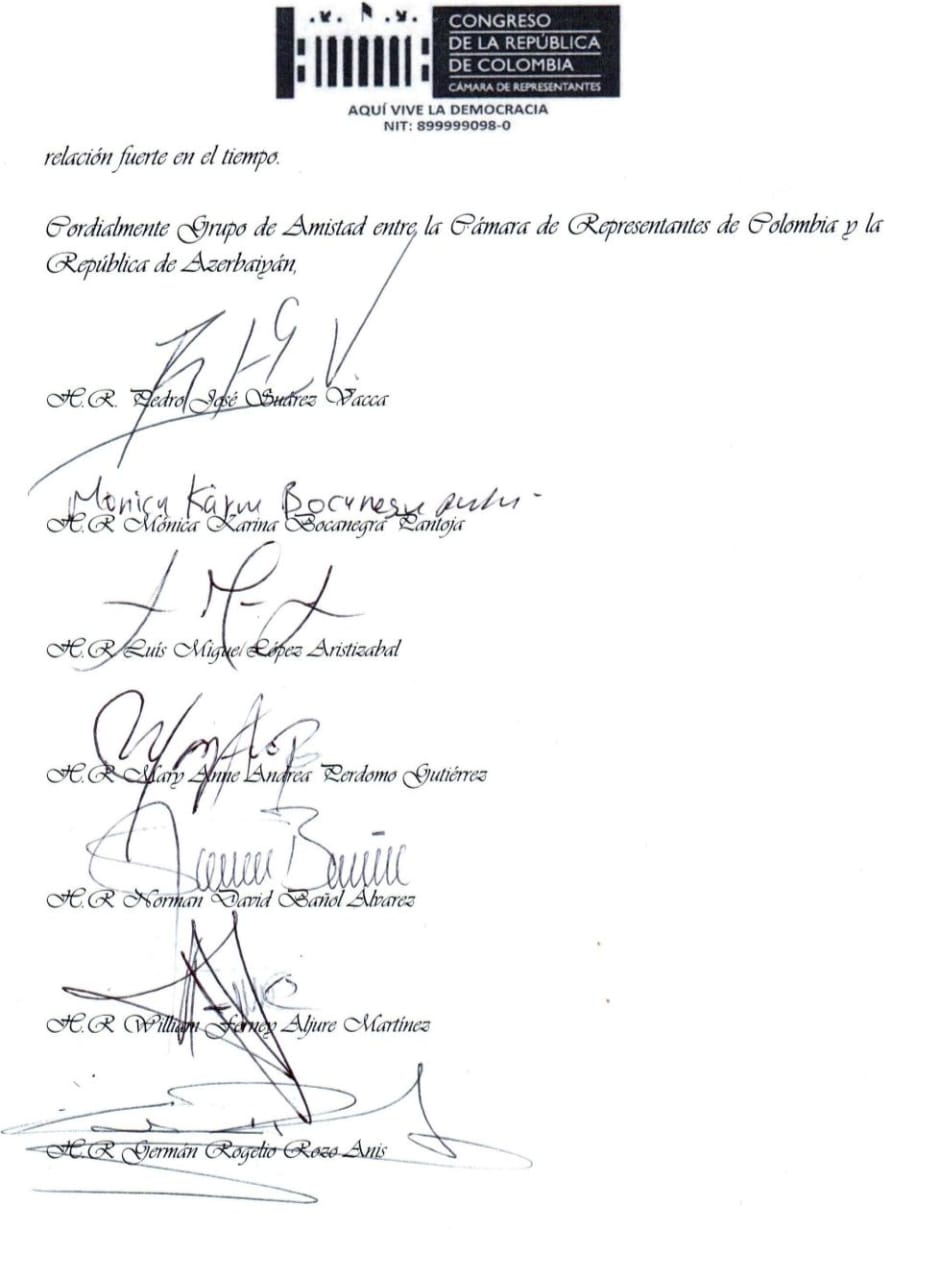 CONGRESO
DE LA REPÚBLICA
DE COLOMBIA
CÁMARA DE REPRESENTANTES
AQUÍ VIVE LA DEMOCRACIA
NIT: 899999098-0
relación fuerte en el tiempo.
Cordialmente Grupo de Amistad entre la Cámara de Representantes de Colombia y la
República de Azerbaiyán,
H.R. Pedro José Suárez Vacca
Monica Karina Bocanegra
H.R Mónica Karina Bocanegra Pantoja
H.R Luís Miguel López Aristizabal
H.R Mary Anne Andrea Perdomo Gutiérrez
H.R Norman David Bañol Álvarez
H.R William Ferney Aljure Martínez
H.R Germán Rogelio Rozo Anis